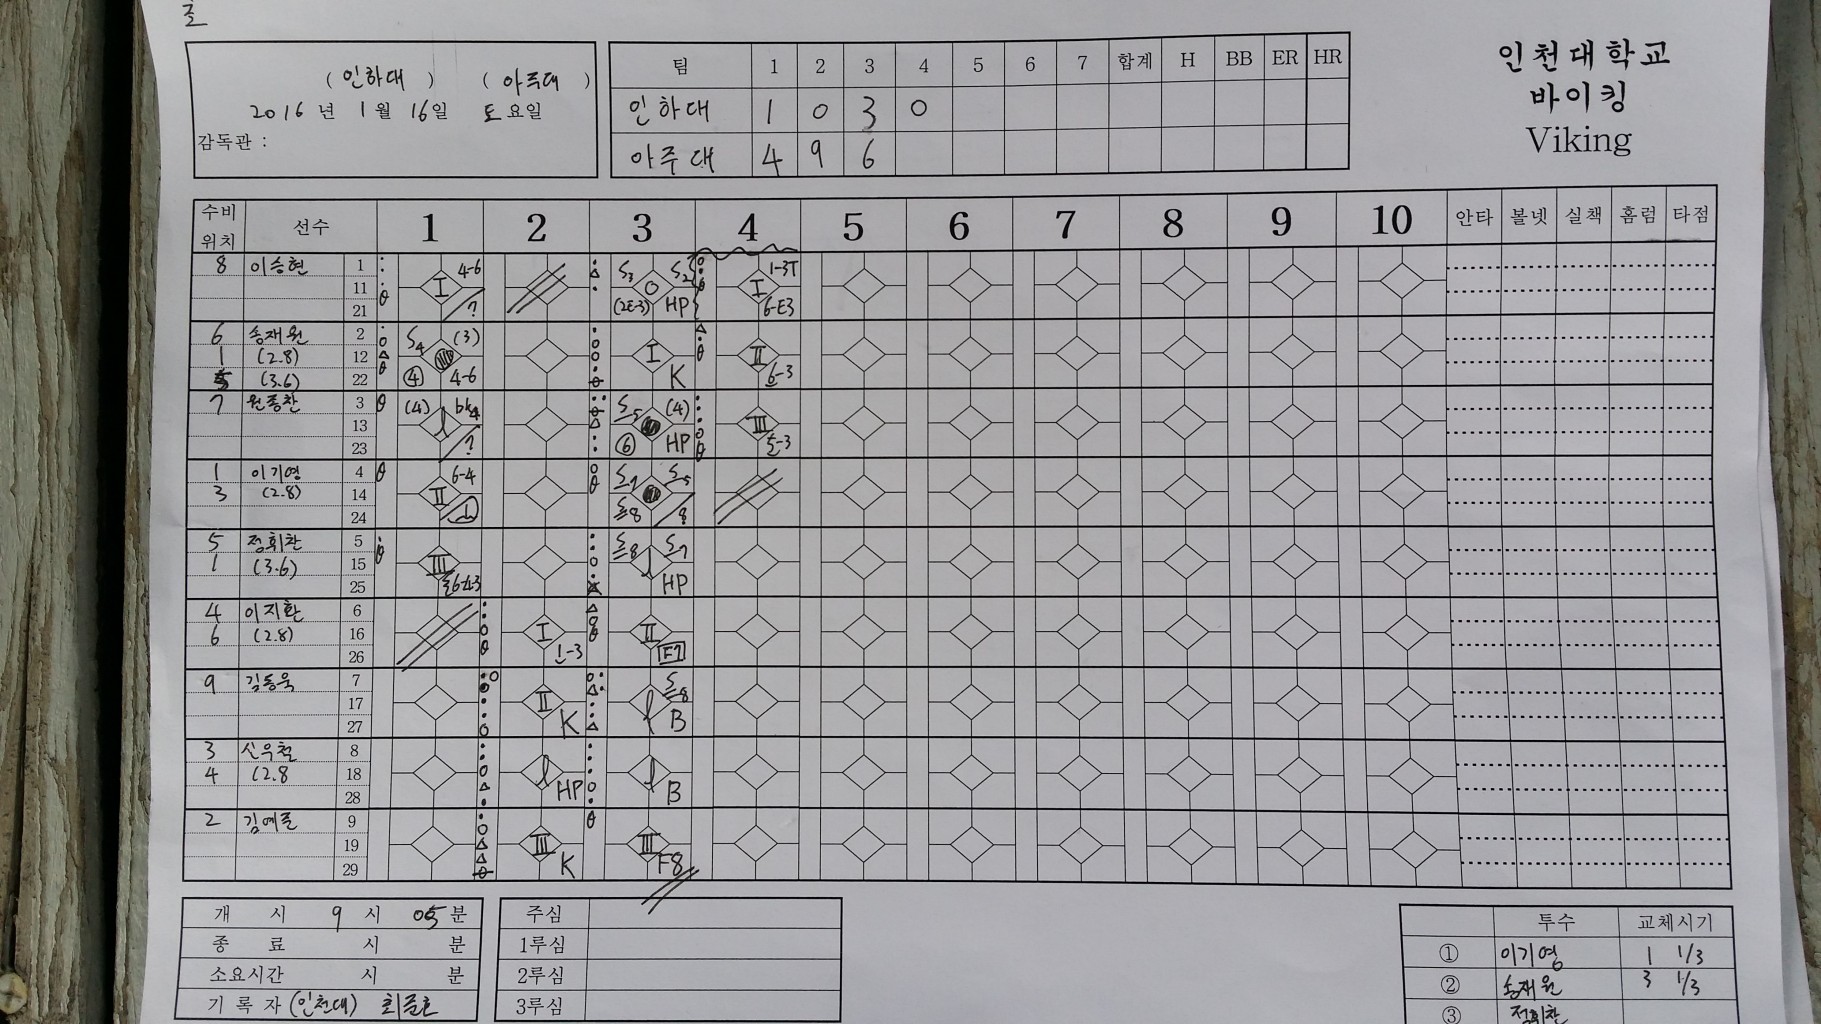 ( 인하대 ) ( 아주대 )
2016 년 1 월 16 일 토 요일
감독관 :
팀 1 2 3 4 5 6 7 합계 H BB ER HR
인하대 1 0 3 0
아주대 4 9 6
인천대학교
바이킹
Viking
수비 위치 선수 1 2 3 4 5 6 7 8 9 10 안타 볼넷 실책 홈럼 타점
8 이승현 1 I 4-6 S3 S2 1-3T
11 (2E-3) HP I 6-E3
21
6 송재원 2 S4 (3)
1 (2.8) 12 I II
(3.6) 22 ④ 4-6 K 6-3
7 원종찬 3 (4) S5 (4)
13 III
23 ⑥ HP 5-3
1 이기영 4 6-4 S7 S5
3 (2.8) 14 II
24 S8 8
5 정휘찬 5 S8 S7
1 (3.6) 15 III
25 6-4-3 HP
4 이지환 6
6 (2.8) 16 I II
26 1-3 F7
9 김동욱 7 S8
17 II
27 K B
3 신우철 8
4 (2.8 18
28 HP B
2 김예준 9
19 III III
29 K F8
개 시 9 시 05 분
종 료 시 분
소요시간 시 분
기 록 자 (인천대) 최준호
주심
1루심
2루심
3루심
투수 교체시기
① 이기영 1 1/3
② 송재원 3 1/3
③ 정휘찬